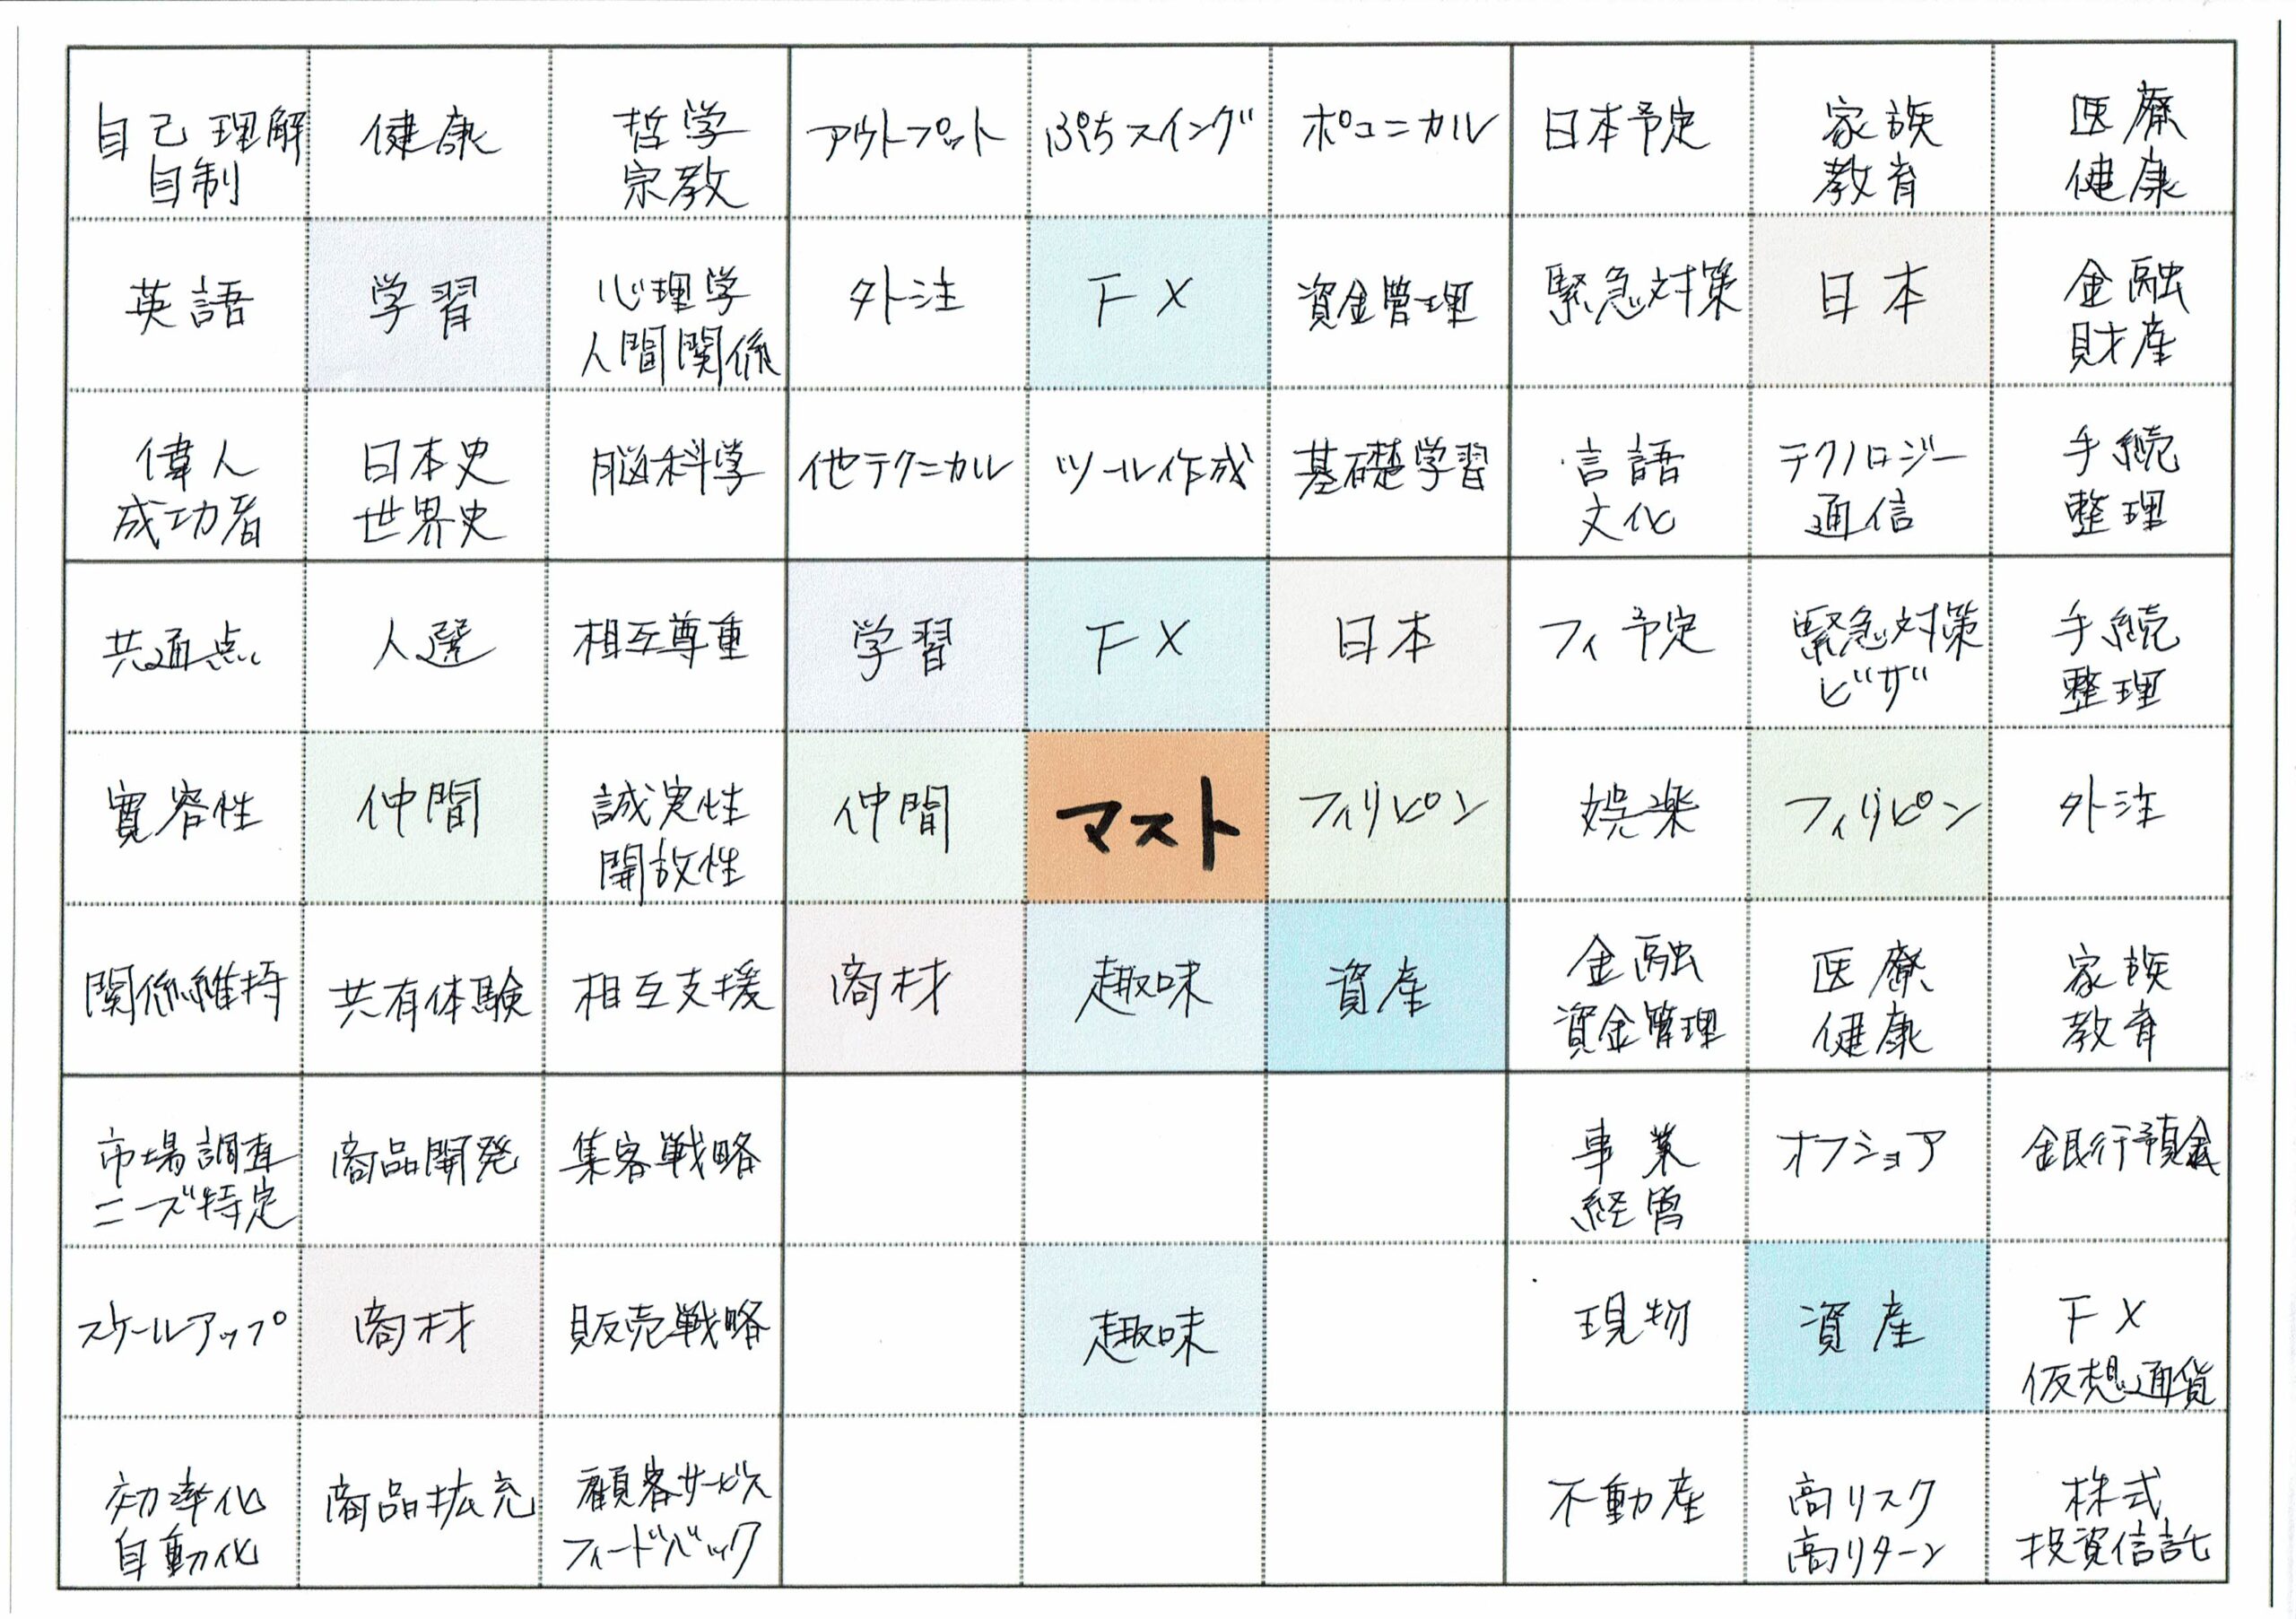 自己理解 健康 哲学 アウトプット ぷちスイング ポコニカル 日本予定 家族 医療
自制 宗教 教育 健康
英語 学習 心理学 外注 FX 資金管理 緊急対策 日本 金融
人間関係 財産
偉人 日本史 脳科学 他テクニカル ツール作成 基礎学習 言語 テクノロジー 手続
成功者 世界史 文化 通信 整理
共通点 人選 相互尊重 学習 FX 日本 フィ予定 緊急対策 手続
ビザ 整理
寛容性 仲間 誠実性 仲間 マスト フィリピン 娯楽 フィリピン 外注
開放性
関係維持 共有体験 相互支援 商材 趣味 資産 金融 医療 家族
資金管理 健康 教育
市場調査 商品開発 集客戦略 事業 オフショア 銀行預金
ニーズ特定 経営
スケールアップ 商材 販売戦略 趣味 現物 資産 FX
仮想通貨
効率化 商品拡充 顧客サービス 不動産 高リスク 株式
自動化 フィードバック 高リターン 投資信託